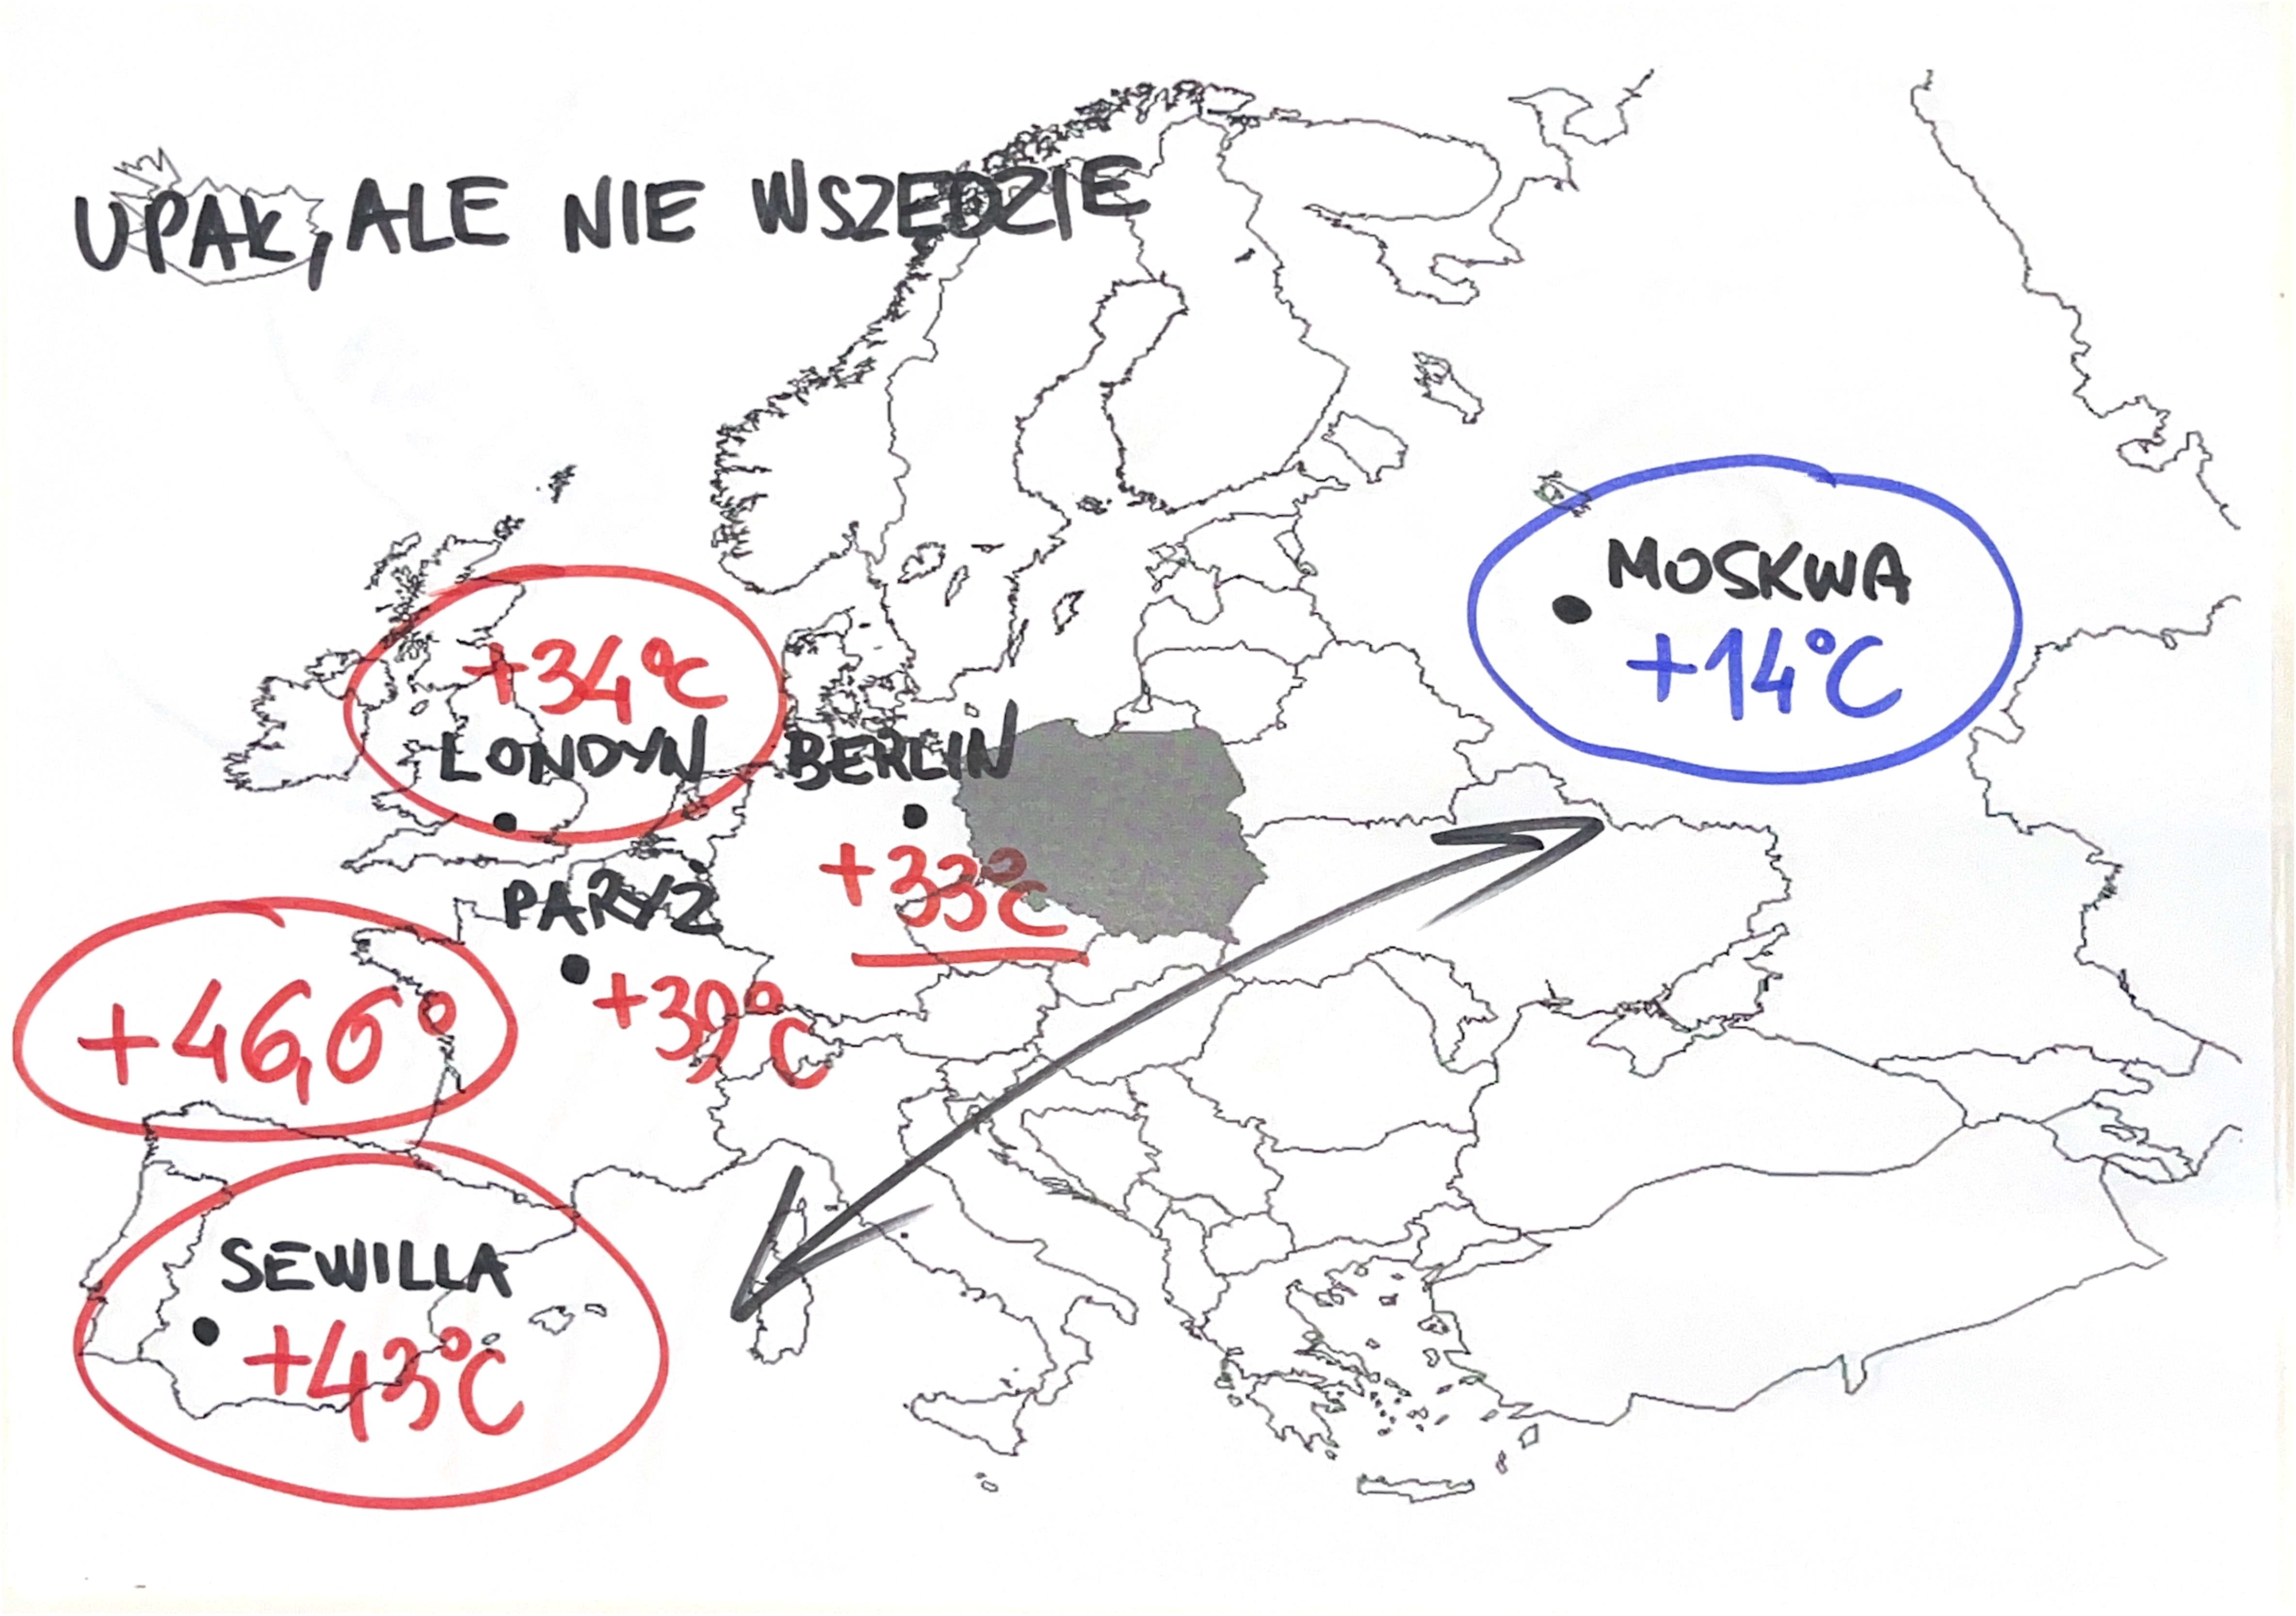 UPAŁ, ALE NIE WSZĘDZIE
+34°C
LONDYN
BERLIN
+33°C
PARYŻ
+39°C
+46,6°
SEWILLA
+43°C
MOSKWA
+14°C